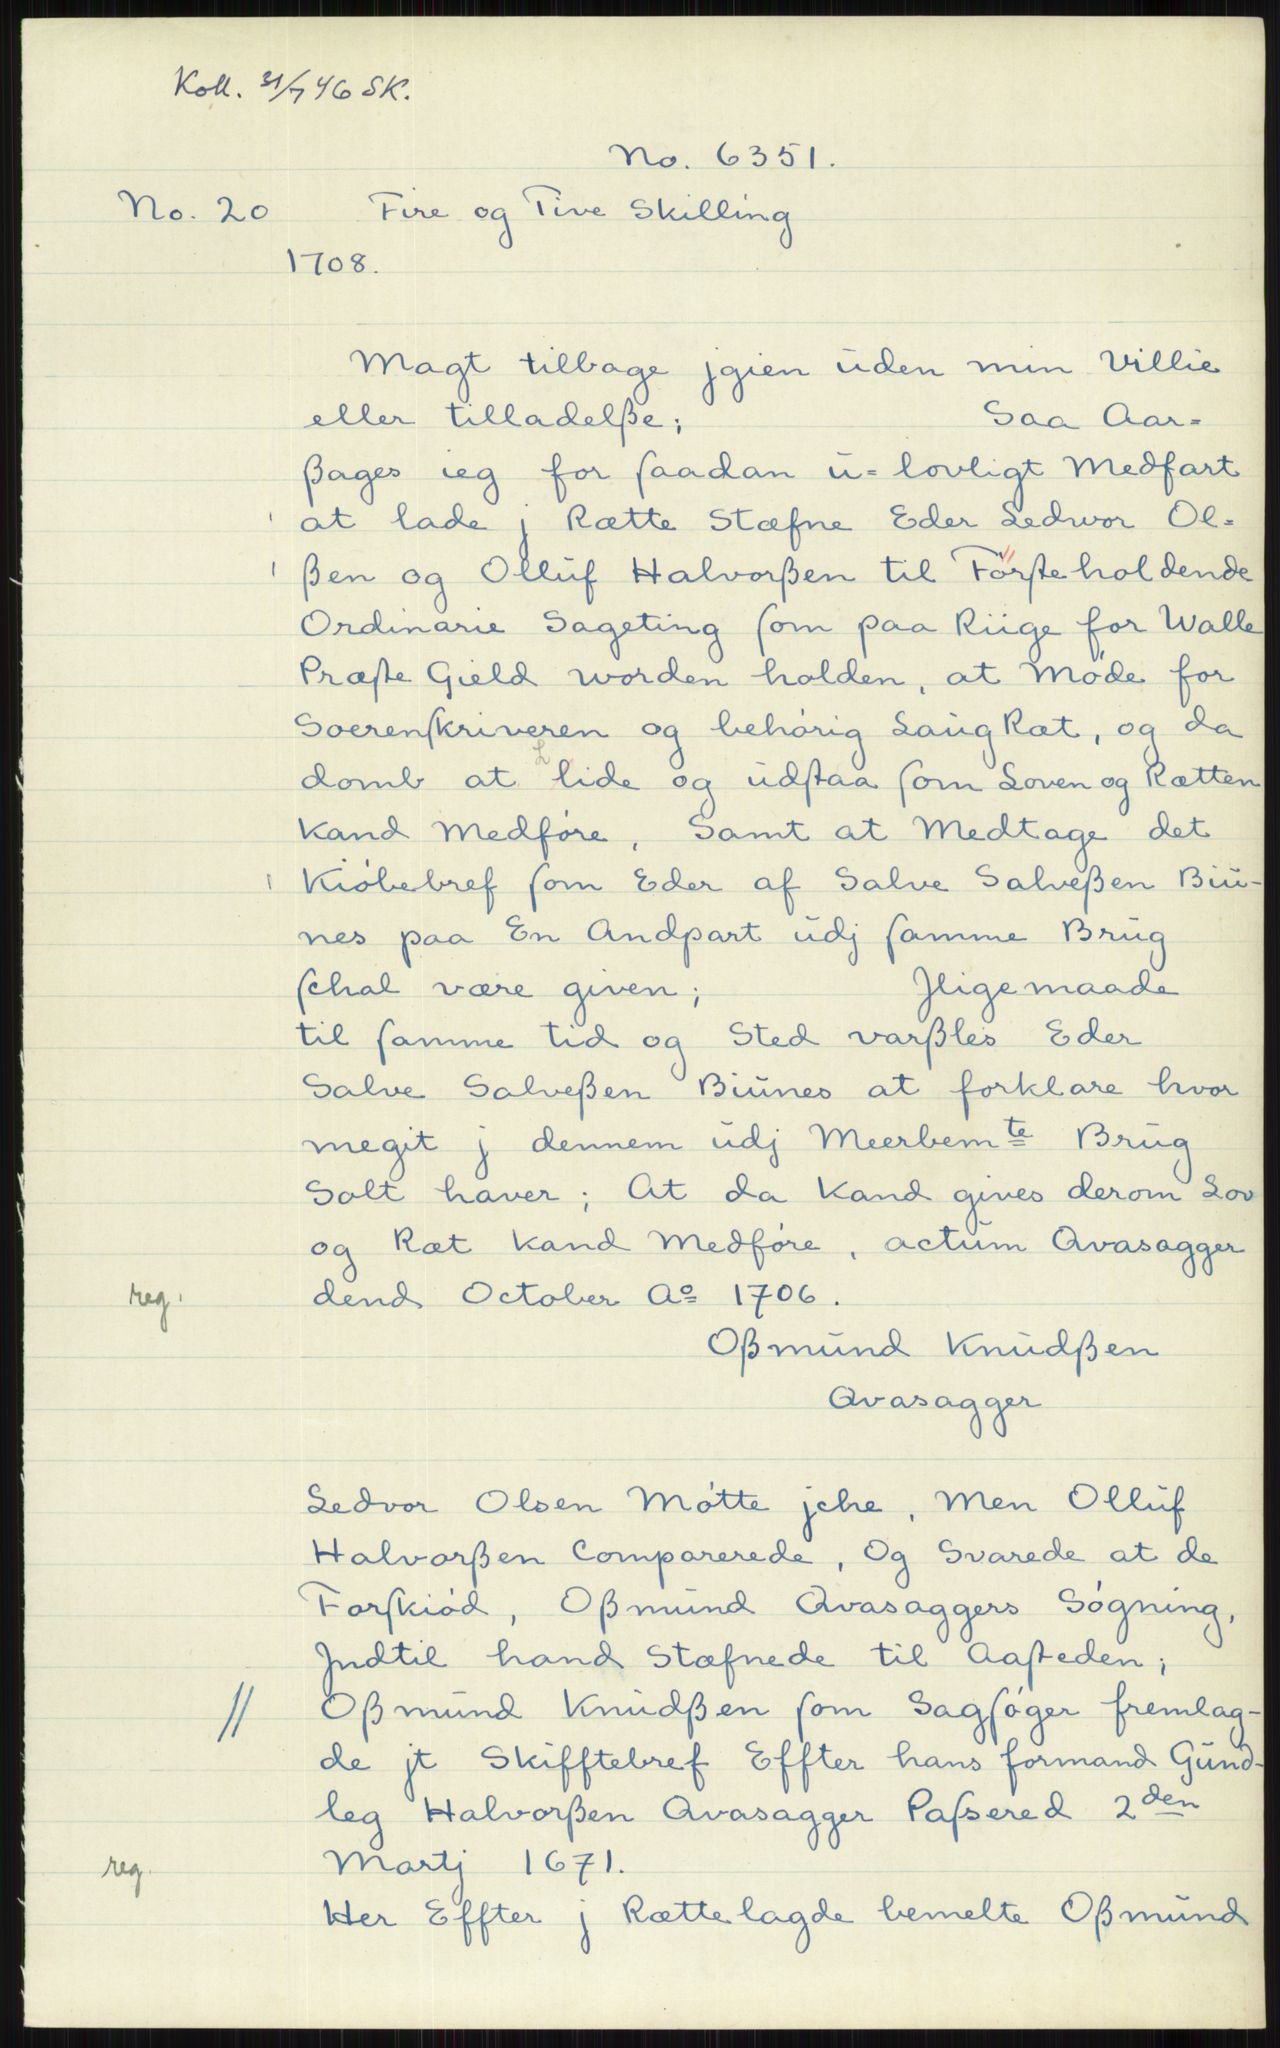 Koll. 31/7 46 SK.
No. 6351.
No. 20 Fire og Tive Skilling
1708.
Magt tilbage jgien uden min Villie
eller tilladelße; Saa Aar=
ßages ieg for saadan u=lovligt Medfart
at lade j Rætte Stæfne Eder Ledwor Ol=
ßen og Olluf Halvorßen til Förste holdende
Ordinarie Sageting som paa Riige for Walle
Præste Gield worden holden, at Møde for
Soerenskriveren og behørig LaugRæt, og da
domb at lide og udstaa som Loven og Rætten
Kand Medføre, Samt at Medtage det
Kiøbebref som Eder af Salve Salveßen Biu-
nes paa En Andpart udj samme Brug
schal være given; Jligemaade
til samme tid og Sted varßles Eder
Salve Salveßen Biunes at forklare hvor
megit j dennem udj Meerbemte Brug
Solt haver; At da Kand gives derom Lov
og Ræt Kand Medføre, actum Qvasagger
reg. dend October Ao 1706.
Oßmund Knudßen
Qvasagger
Ledvor Olsen Møtte jche, Men Olluf
Halvorßen Comparerede, Og Svarede at de
Forskiød, Oßmund Qvasaggers Søgning,
Jndtil hand Stæfnede til Aasteden;
// Oßmund Knudßen som Sagsøger fremlag-
de jt Skifftebref Effter hans formand Gund-
leg Halvorßen Qvasagger Passered 2den
reg. Martj 1671.
Her Effter j Rætte lagde bemelte Oßmund